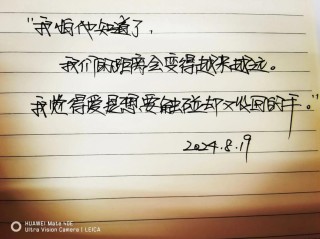 "我怕他知道了,
我们的距离会变得越来越远。
我觉得爱是想要触碰却又收回的手。"
2024.8.19
HUAWEI Mate 40E
Ultra Vision Camera | LEICA